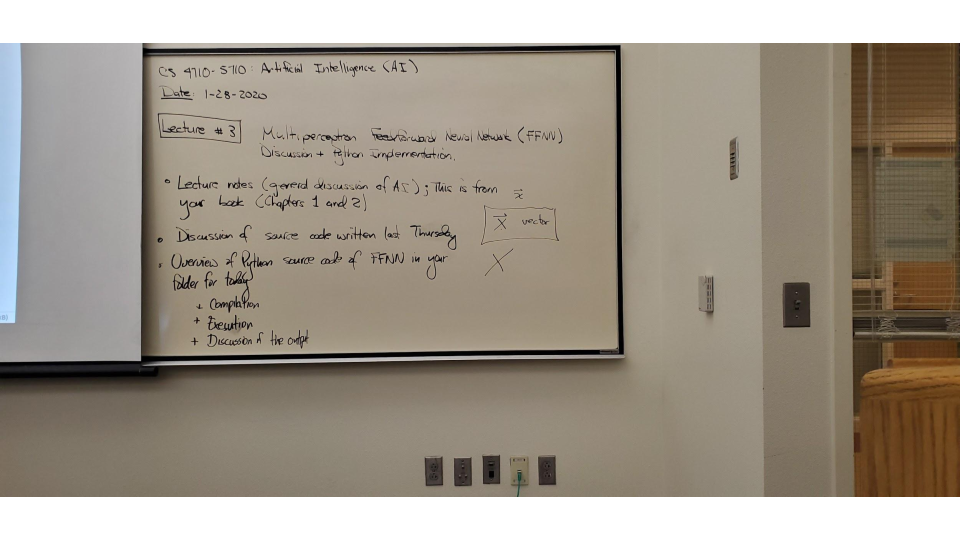 CS 4710-5710: Artificial Intelligence (AI)
Date: 1-28-2020
Lecture # 3
Multiperceptron Feedforward Neural Network (FFNN)
Discussion + Python Implementation.
• Lecture notes (general discussion of AI); This is from
your book (Chapters 1 and 2)
x
X vector
X
• Discussion of source code written last Thursday
• Overview of Python source code of FFNN in your
folder for today
+ Compilation
+ Execution
+ Discussion of the output